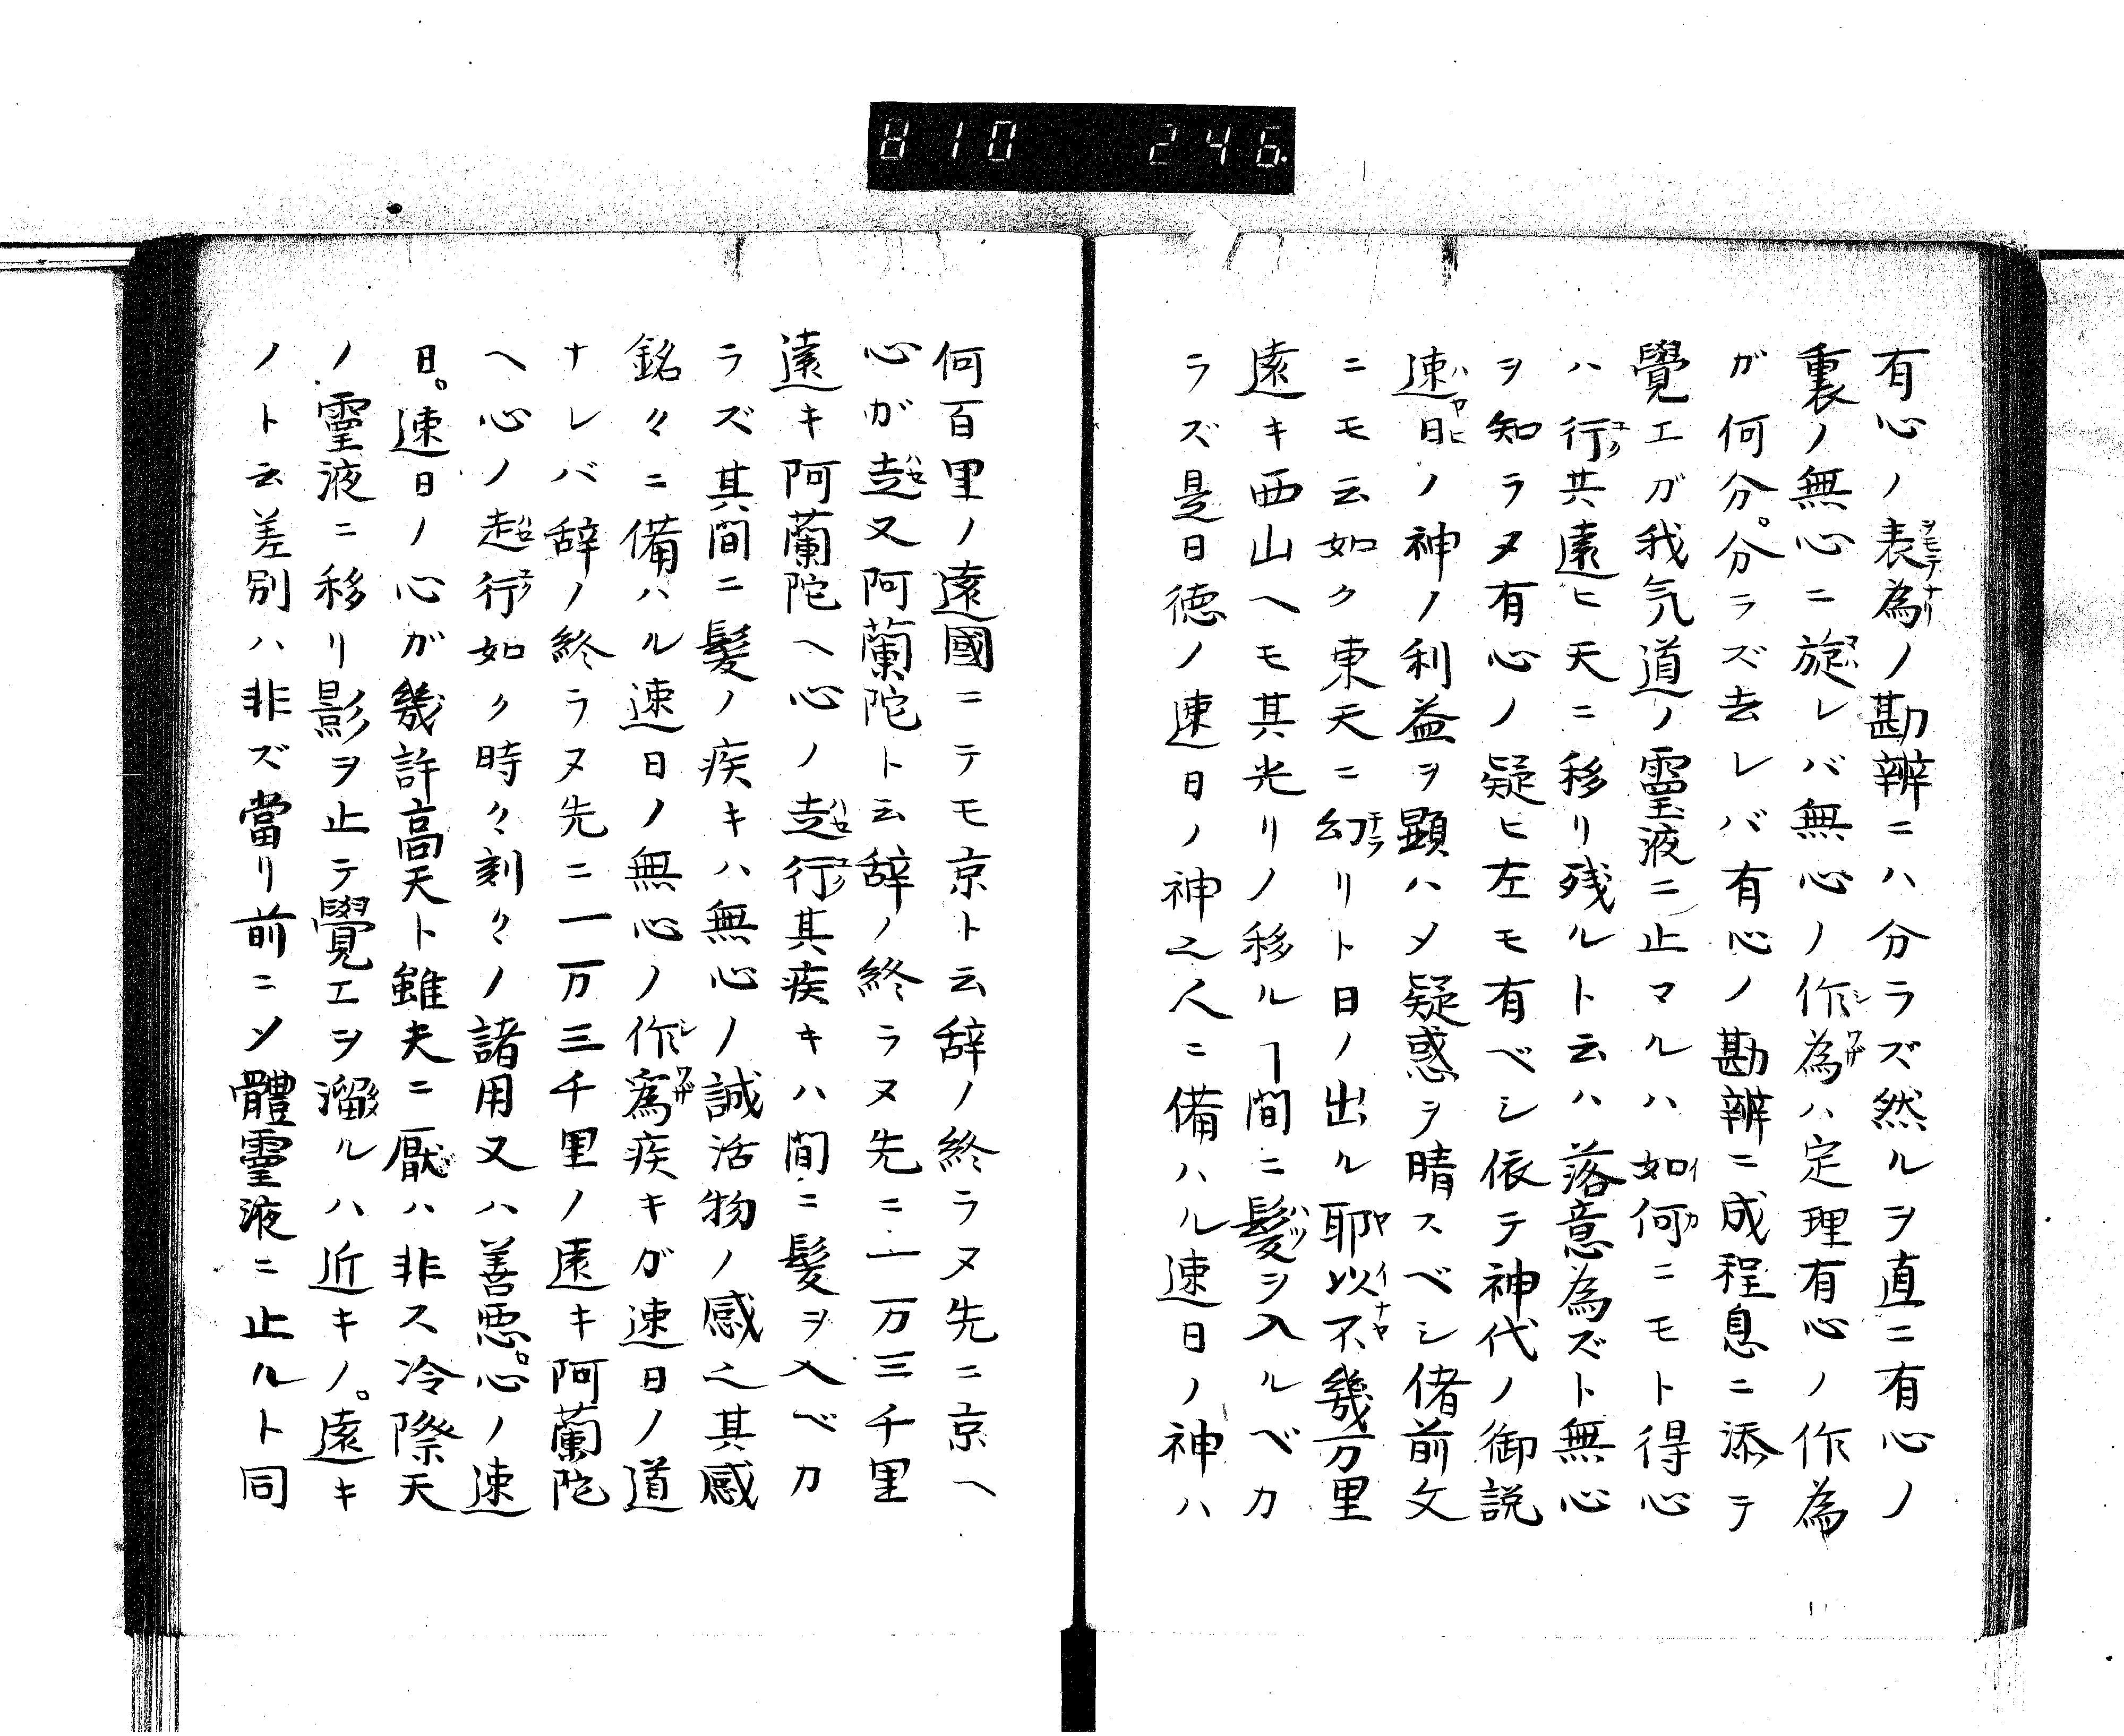 810 246
有心ノ表為ノ勘辨ニハ分ラズ然ルヲ直ニ有心ノ
裏ノ無心ニ旋レバ無心ノ作為ハ定理有心ノ作為
ガ何分。分ラズ去レバ有心ノ勘辨ニ成程息ニ添テ
覺エガ我気道ノ霊液ニ止マルハ如何ニモト得心
ハ行共遠ヒ天ニ移リ残ルト云ハ落意為ズト無心
ヲ知ラヌ有心ノ疑ヒ左モ有ベシ依テ神代ノ御説
速日ノ神ノ利益ヲ顕ハメ疑惑ヲ晴スベシ偖前文
ニモ云如ク東天ニ幻リト日ノ出ル耶以不幾万里
遠キ西山ヘモ其光リノ移ルヿ間ニ髪ヲ入ルベカ
ラズ是日徳ノ速日ノ神之人ニ備ハル速日ノ神ハ
何百里ノ遠國ニテモ京ト云辞ノ終ラヌ先ニ京ヘ
心ガ走又阿蘭陀ト云辞ノ終ラヌ先ニ一万三千里
遠キ阿蘭陀ヘ心ノ走行其疾キハ間ニ髪ヲ入ベカ
ラズ其間ニ髪ノ疾キハ無心ノ誠活物ノ感之其感
銘々ニ備ハル速日ノ無心ノ作為疾キガ速日ノ道
ナレバ辞ノ終ラヌ先ニ一万三千里ノ遠キ阿蘭陀
ヘ心ノ走行如ク時々刻々ノ諸用又ハ善悪心ノ速
日。速日ノ心ガ幾許高天ト雖夫ニ厭ハ非ス冷際天
ノ霊液ニ移リ影ヲ止テ覺エヲ溜ルハ近キノ。遠キ
ノト云差別ハ非ズ當リ前ニソ體霊液ニ止ルト同